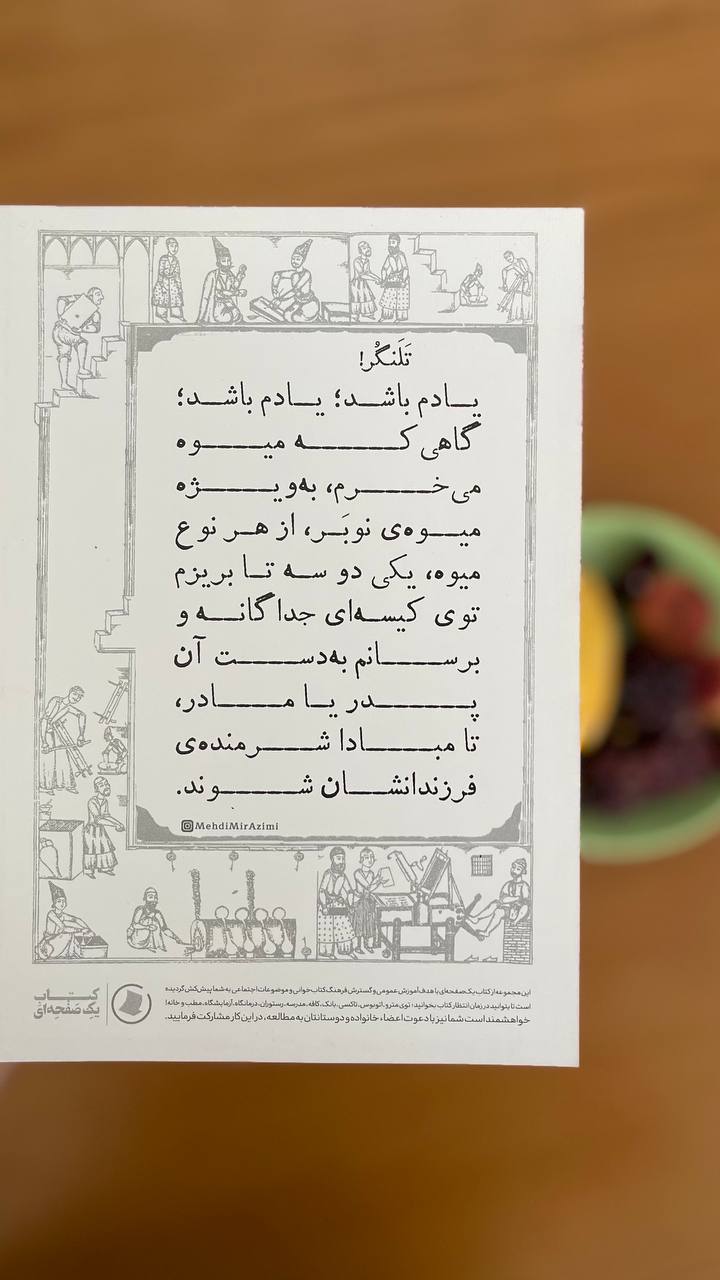 تَلَنگُر!
یادم باشد؛ یادم باشد؛
گاهی که میوه
می‌خرم، به‌ویژه
میوه‌ی نوبَر، از هر نوع
میوه، یکی دو سه تا بریزم
توی کیسه‌ای جداگانه و
برسانم به‌دست آن
پدر یا مادر،
تا مبادا شرمنده‌ی
فرزندانشان شوند.
MehdiMirAzimi
این مجموعه از کتاب یک‌صفحه‌ای با هدف آموزش عمومی و گسترش فرهنگ کتاب‌خوانی و موضوعات اجتماعی به شما پیش‌کش گردیده
است تا بتوانید در زمان انتظار کتاب بخوانید؛ توی مترو، اتوبوس، تاکسی، بانک، کافه، مدرسه، رستوران، درمانگاه، آزمایشگاه، مطب و خانه!
خواهشمند است شما نیز با دعوت اعضاء خانواده و دوستانتان به مطالعه، در این کار مشارکت فرمایید.
کتاب
یک صَفحِه‌ای